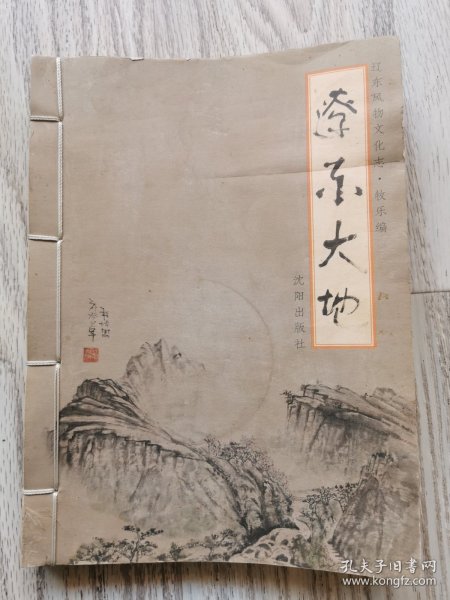 辽东风物文化志·牧乐编
辽东大地
沈阳出版社
孔夫子旧书网
www.kongfz.com